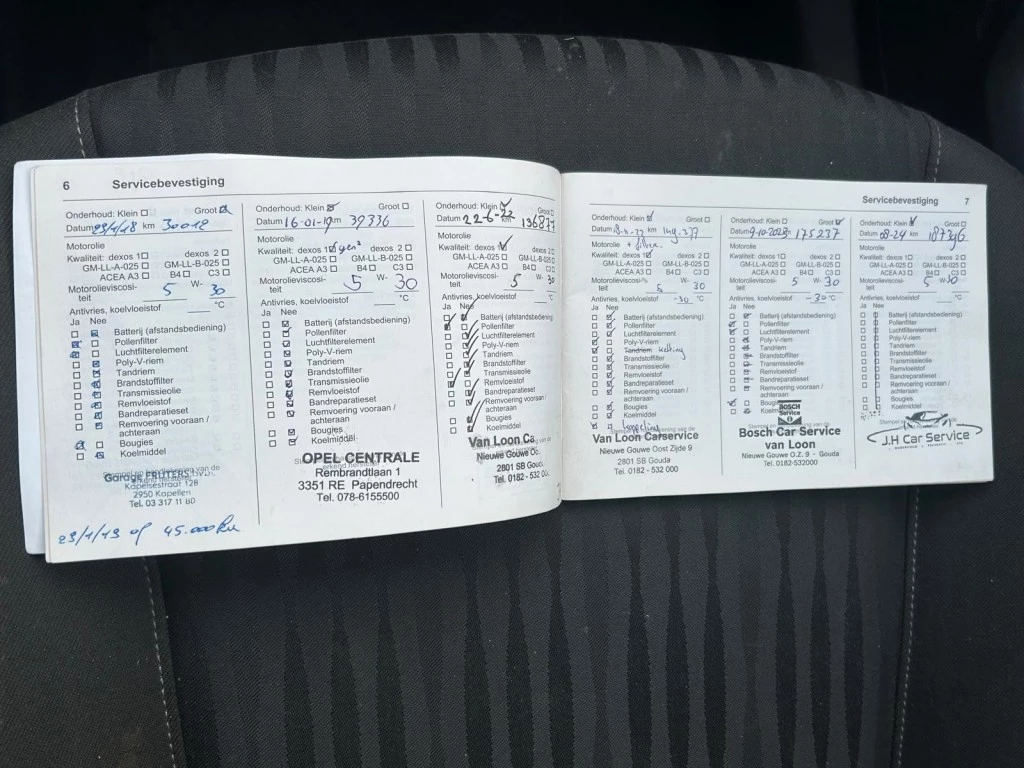 6 Servicebevestiging
Onderhoud: Klein Groot
Datum 29/1/18 km 30012
Motorolie
Kwaliteit: dexos 1 dexos 2
GM-LL-A-025 GM-LL-B-025
ACEA A3 B4 C3
Motorolieviscosi- W-
teit 5 30
Antivries, koelvloeistof °C
Ja Nee
Batterij (afstandsbediening)
Pollenfilter
Luchtfilterelement
Poly-V-riem
Tandriem
Brandstoffilter
Transmissieolie
Remvloeistof
Bandreparatieset
Remvoering vooraan /
achteraan
Bougies
Koelmiddel
Kapelsestraat 128
2950 Kapellen
Tel. 03 317 11 80
29/1/19 of 45.000 km
Onderhoud: Klein Groot
Datum 16-01-19 km 39336
Motorolie
Kwaliteit: dexos 1 dexos 2
GM-LL-A-025 GM-LL-B-025
ACEA A3 B4 C3
Motorolieviscosi- W-
teit 5 30
Antivries, koelvloeistof °C
Ja Nee
Batterij (afstandsbediening)
Pollenfilter
Luchtfilterelement
Poly-V-riem
Tandriem
Brandstoffilter
Transmissieolie
Remvloeistof
Bandreparatieset
Remvoering vooraan /
achteraan
Bougies
Koelmiddel
OPEL CENTRALE
Rembrandtlaan 1
3351 RE Papendrecht
Tel. 078-6155500
Onderhoud: Klein Groot
Datum 22-6-22 km 136877
Motorolie
Kwaliteit: dexos 1 dexos 2
GM-LL-A-025 GM-LL-B-025
ACEA A3 B4 C3
Motorolieviscosi- W-
teit 5 30
Antivries, koelvloeistof °C
Ja Nee
Batterij (afstandsbediening)
Pollenfilter
Luchtfilterelement
Poly-V-riem
Tandriem
Brandstoffilter
Transmissieolie
Remvloeistof
Bandreparatieset
Remvoering vooraan /
achteraan
Bougies
Koelmiddel
Van Loon Ca
Nieuwe Gouwe
2801 SB Gouda
Tel. 0182 - 532 00
Servicebevestiging 7
Onderhoud: Klein Groot
Datum km 149.277
Motorolie + filter
Kwaliteit: dexos 1 dexos 2
GM-LL-A-025 GM-LL-B-025
ACEA A3 B4 C3
Motorolieviscosi- W-
teit 5 30
Antivries, koelvloeistof -30 °C
Ja Nee
Batterij (afstandsbediening)
Pollenfilter
Luchtfilterelement
Poly-V-riem
Tandriem ketting
Brandstoffilter
Transmissieolie
Remvloeistof
Bandreparatieset
Remvoering vooraan /
achteraan
Bougies
Koelmiddel
koppeling
Van Loon Carservice
Nieuwe Gouwe Oost Zijde 9
2801 SB Gouda
Tel. 0182 - 532 000
Onderhoud: Klein Groot
Datum 9-10-2023 km 175237
Motorolie
Kwaliteit: dexos 1 dexos 2
GM-LL-A-025 GM-LL-B-025
ACEA A3 B4 C3
Motorolieviscosi- W-
teit 5 30
Antivries, koelvloeistof -30 °C
Ja Nee
Batterij (afstandsbediening)
Pollenfilter
Luchtfilterelement
Poly-V-riem
Tandriem
Brandstoffilter
Transmissieolie
Remvloeistof
Bandreparatieset
Remvoering vooraan /
achteraan
Bougies
Koelmiddel
BOSCH
Service
Bosch Car Service
van Loon
Nieuwe Gouwe O.Z. 9 - Gouda
Tel. 0182-532000
Onderhoud: Klein Groot
Datum 08-24 km 187396
Motorolie
Kwaliteit: dexos 1 dexos 2
GM-LL-A-025 GM-LL-B-025
ACEA A3 B4 C3
Motorolieviscosi- W-
teit 5 30
Antivries, koelvloeistof °C
Ja Nee
Batterij (afstandsbediening)
Pollenfilter
Luchtfilterelement
Poly-V-riem
Tandriem
Brandstoffilter
Transmissieolie
Remvloeistof
Bandreparatieset
Remvoering vooraan /
achteraan
Bougies
Koelmiddel
J.H Car Service